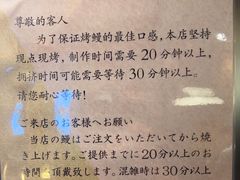 尊敬的客人
为了保证烤鳗的最佳口感，本店坚持
现点现烤，制作时间需要 20 分钟以上，
拥挤时间可能需要等待 30 分钟以上。
请您耐心等待！
ご来店のお客様へお願い
当店の鰻はご注文をいただいてから焼
き上げます。ご提供までに20分以上のお
時間を頂戴致します。混雑時は30分以上